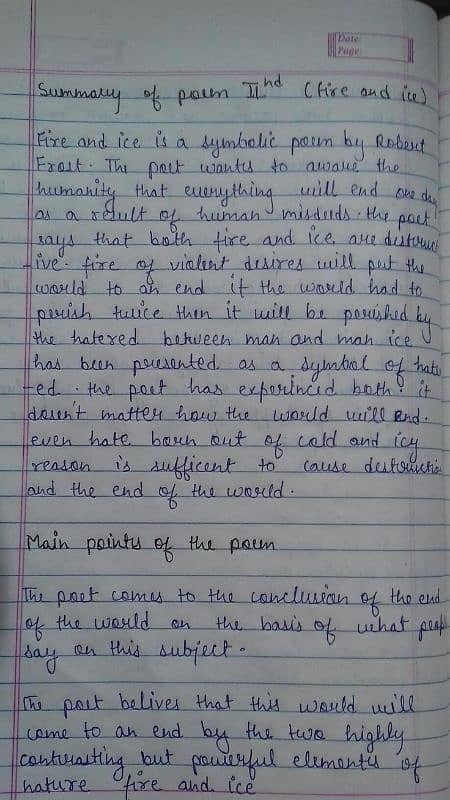 Date
Page
Summary of poem IInd (fire and ice)
Fire and ice is a symbolic poem by Robert
Frost. The poet wants to aware the
humanity that everything will end one day
as a result of human misdeeds. the poet
says that both fire and ice are destruct
ive. fire of violent desires will put the
world to an end if the world had to
perish twice then it will be perished by
the hatered between man and man ice
has been presented as a symbol of hate
ted. the poet has experinced both. it
dosen't matter how the world will End.
even hate born out of cold and icy
reason is sufficent to cause destructio
and the end of the world.
Main points of the poem
The poet comes to the conclusion of the end
of the world on the basis of what peop
say on this subject.
The poet belives that this world will
come to an end by the two highly
contrasting but powerful elements of
nature fire and ice